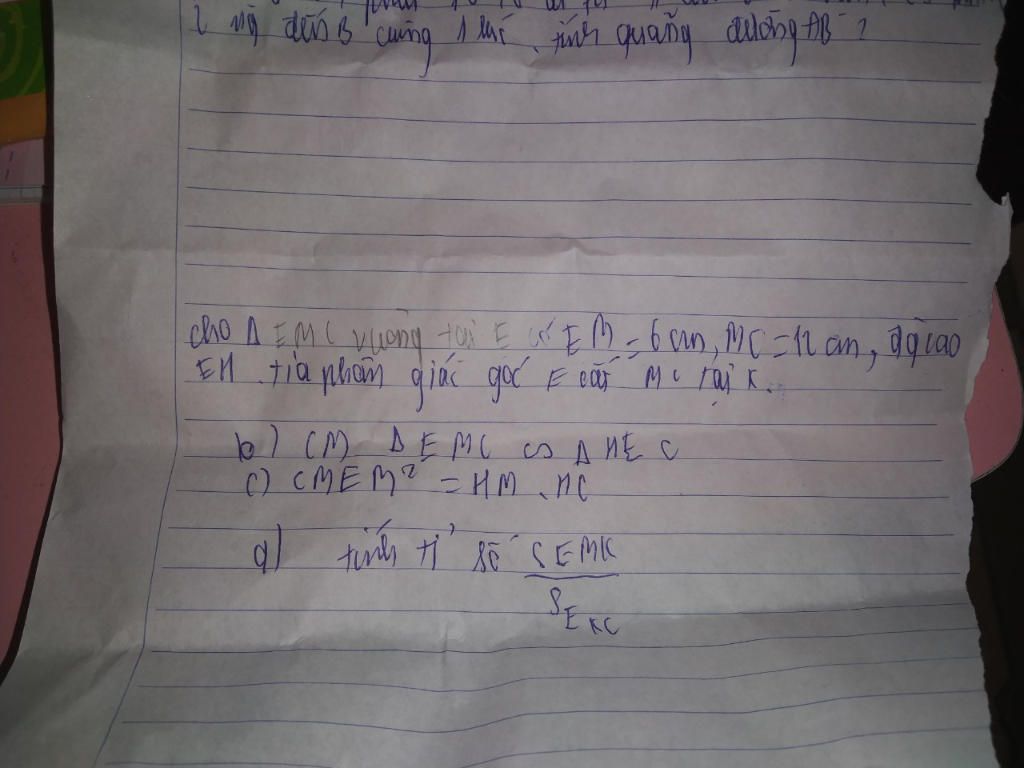 2 ng đến B cùng 1 lúc, tính quãng đường AB ?
cho Δ EMC vuông tại E có EM = 6 cm, MC = 12 cm, đg cao
EH. tia phân giác góc E cắt MC tại K.
b) CM Δ EMC ∽ Δ HEC
c) CM EM² = HM . HC
d) tính tỉ số SEMK
SEKC